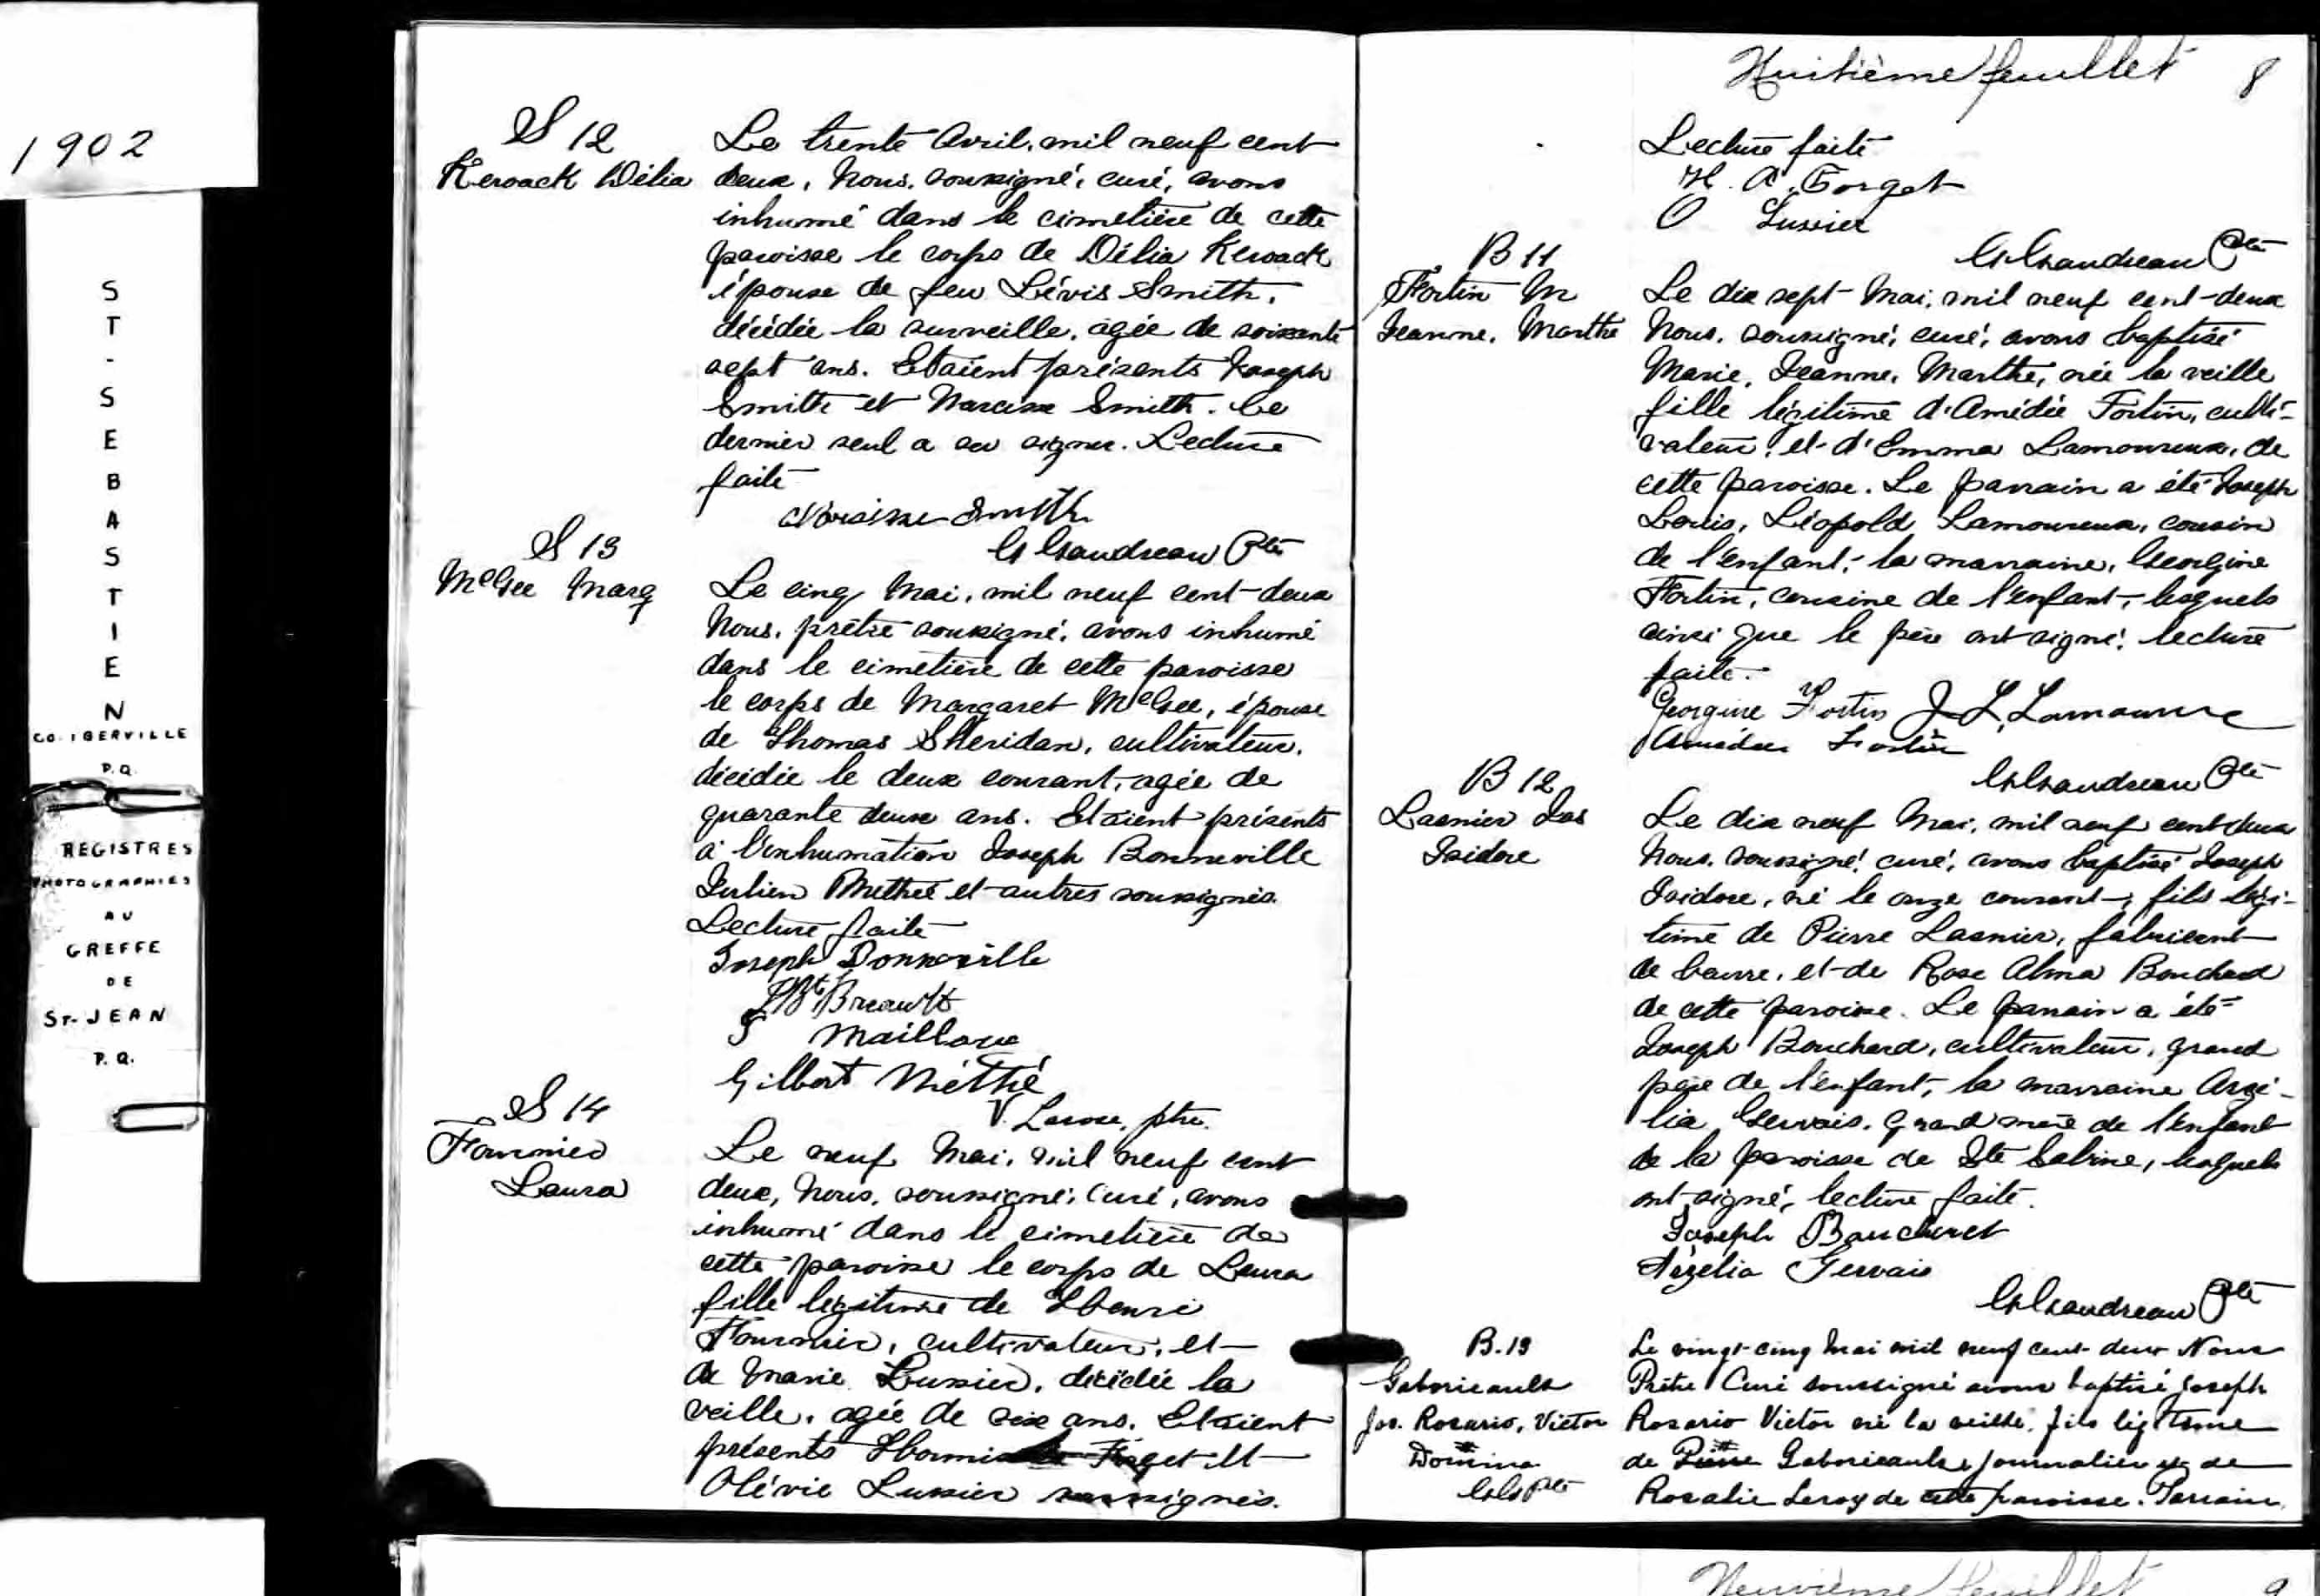 1902
ST-SEBASTIEN
CO. IBERVILLE
P.Q.
REGISTRES
PHOTOGRAPHIES
AU
GREFFE
DE
ST-JEAN
P.Q.
S 12
Keroack Délia
Le trente Avril, mil neuf cent
deux, Nous, soussigné, curé, avons
inhumé dans le cimetière de cette
paroisse le corps de Délia Keroack
épouse de feu Lévis Smith,
décédée la surveille, agée de soixante
sept ans. Etaient présents Joseph
Smith et Narcisse Smith. Ce
dernier seul a su signer. Lecture
faite
Narcisse Smith
G Gaudreau Ptre
S 13
McGee Marg
Le cinq Mai, mil neuf cent-deux
Nous, prêtre soussigné, avons inhumé
dans le cimetière de cette paroisse
le corps de Margaret McGee, épouse
de Thomas Sheridan, cultivateur,
décédée le deux courant, agée de
quarante deux ans. Etaient présents
à l'inhumation Joseph Bonneville
Julien Methié et autres soussignés.
Lecture faite
Joseph Bonneville
Breault
Mailloux
Gilbert Méthé
V. Larose, ptre.
S 14
Fournier
Laura
Le neuf Mai, mil neuf cent
deux, Nous, soussigné, Curé, avons
inhumé dans le cimetière de
cette paroisse le corps de Laura
fille légitime de Henri
Fournier, cultivateur, et
de Marie Lussier, décédée la
veille, agée de six ans. Etaient
présents Hormisdas Forget et
Olévie Lussier soussignés.
Huitième feuillet 8
Lecture faite
H. A. Forget
O Lussier
G Gaudreau Ptre
B 11
Fortin M
Jeanne, Marthe
Le dix sept Mai, mil neuf cent-deux
Nous, soussigné, curé, avons baptisé
Marie, Jeanne, Marthe, née la veille
fille légitime d'Amédée Fortin, culti-
vateur, et d'Emma Lamoureux, de
cette paroisse. Le parrain a été Joseph
Louis, Léopold Lamoureux, cousin
de l'enfant, la marraine, Georgine
Fortin, cousine de l'enfant, lesquels
ainsi que le père ont signé, lecture
faite.
Georgine Fortin J. L. Lamoureux
Amédée Fortin
G Gaudreau Ptre
B 12
Lasnier Jos
Isidore
Le dix neuf Mai, mil neuf cent deux
Nous, soussigné, curé, avons baptisé Joseph
Isidore, né le onze courant, fils légi-
time de Pierre Lasnier, fabricant
de beurre, et de Rose Alma Bouchard
de cette paroisse. Le parrain a été
Joseph Bouchard, cultivateur, grand
père de l'enfant, la marraine Arzé-
lia Gervais, grand mère de l'enfant
de la paroisse de Ste Sabine, lesquels
ont signé, lecture faite.
Joseph Boucheret
Arzélia Gervais
G Gaudreau Ptre
B. 13
Gaboriault
Jos. Rosario, Victor
Domina
GG Ptre
Le vingt-cinq Mai mil neuf cent-deux Nous
Prêtre Curé soussigné avons baptisé Joseph
Rosario Victor né la veille, fils légitime
de Pierre Gaboriault journalier et de
Rosalie Leroy de cette paroisse. Parrain
Neuvième feuillet 9